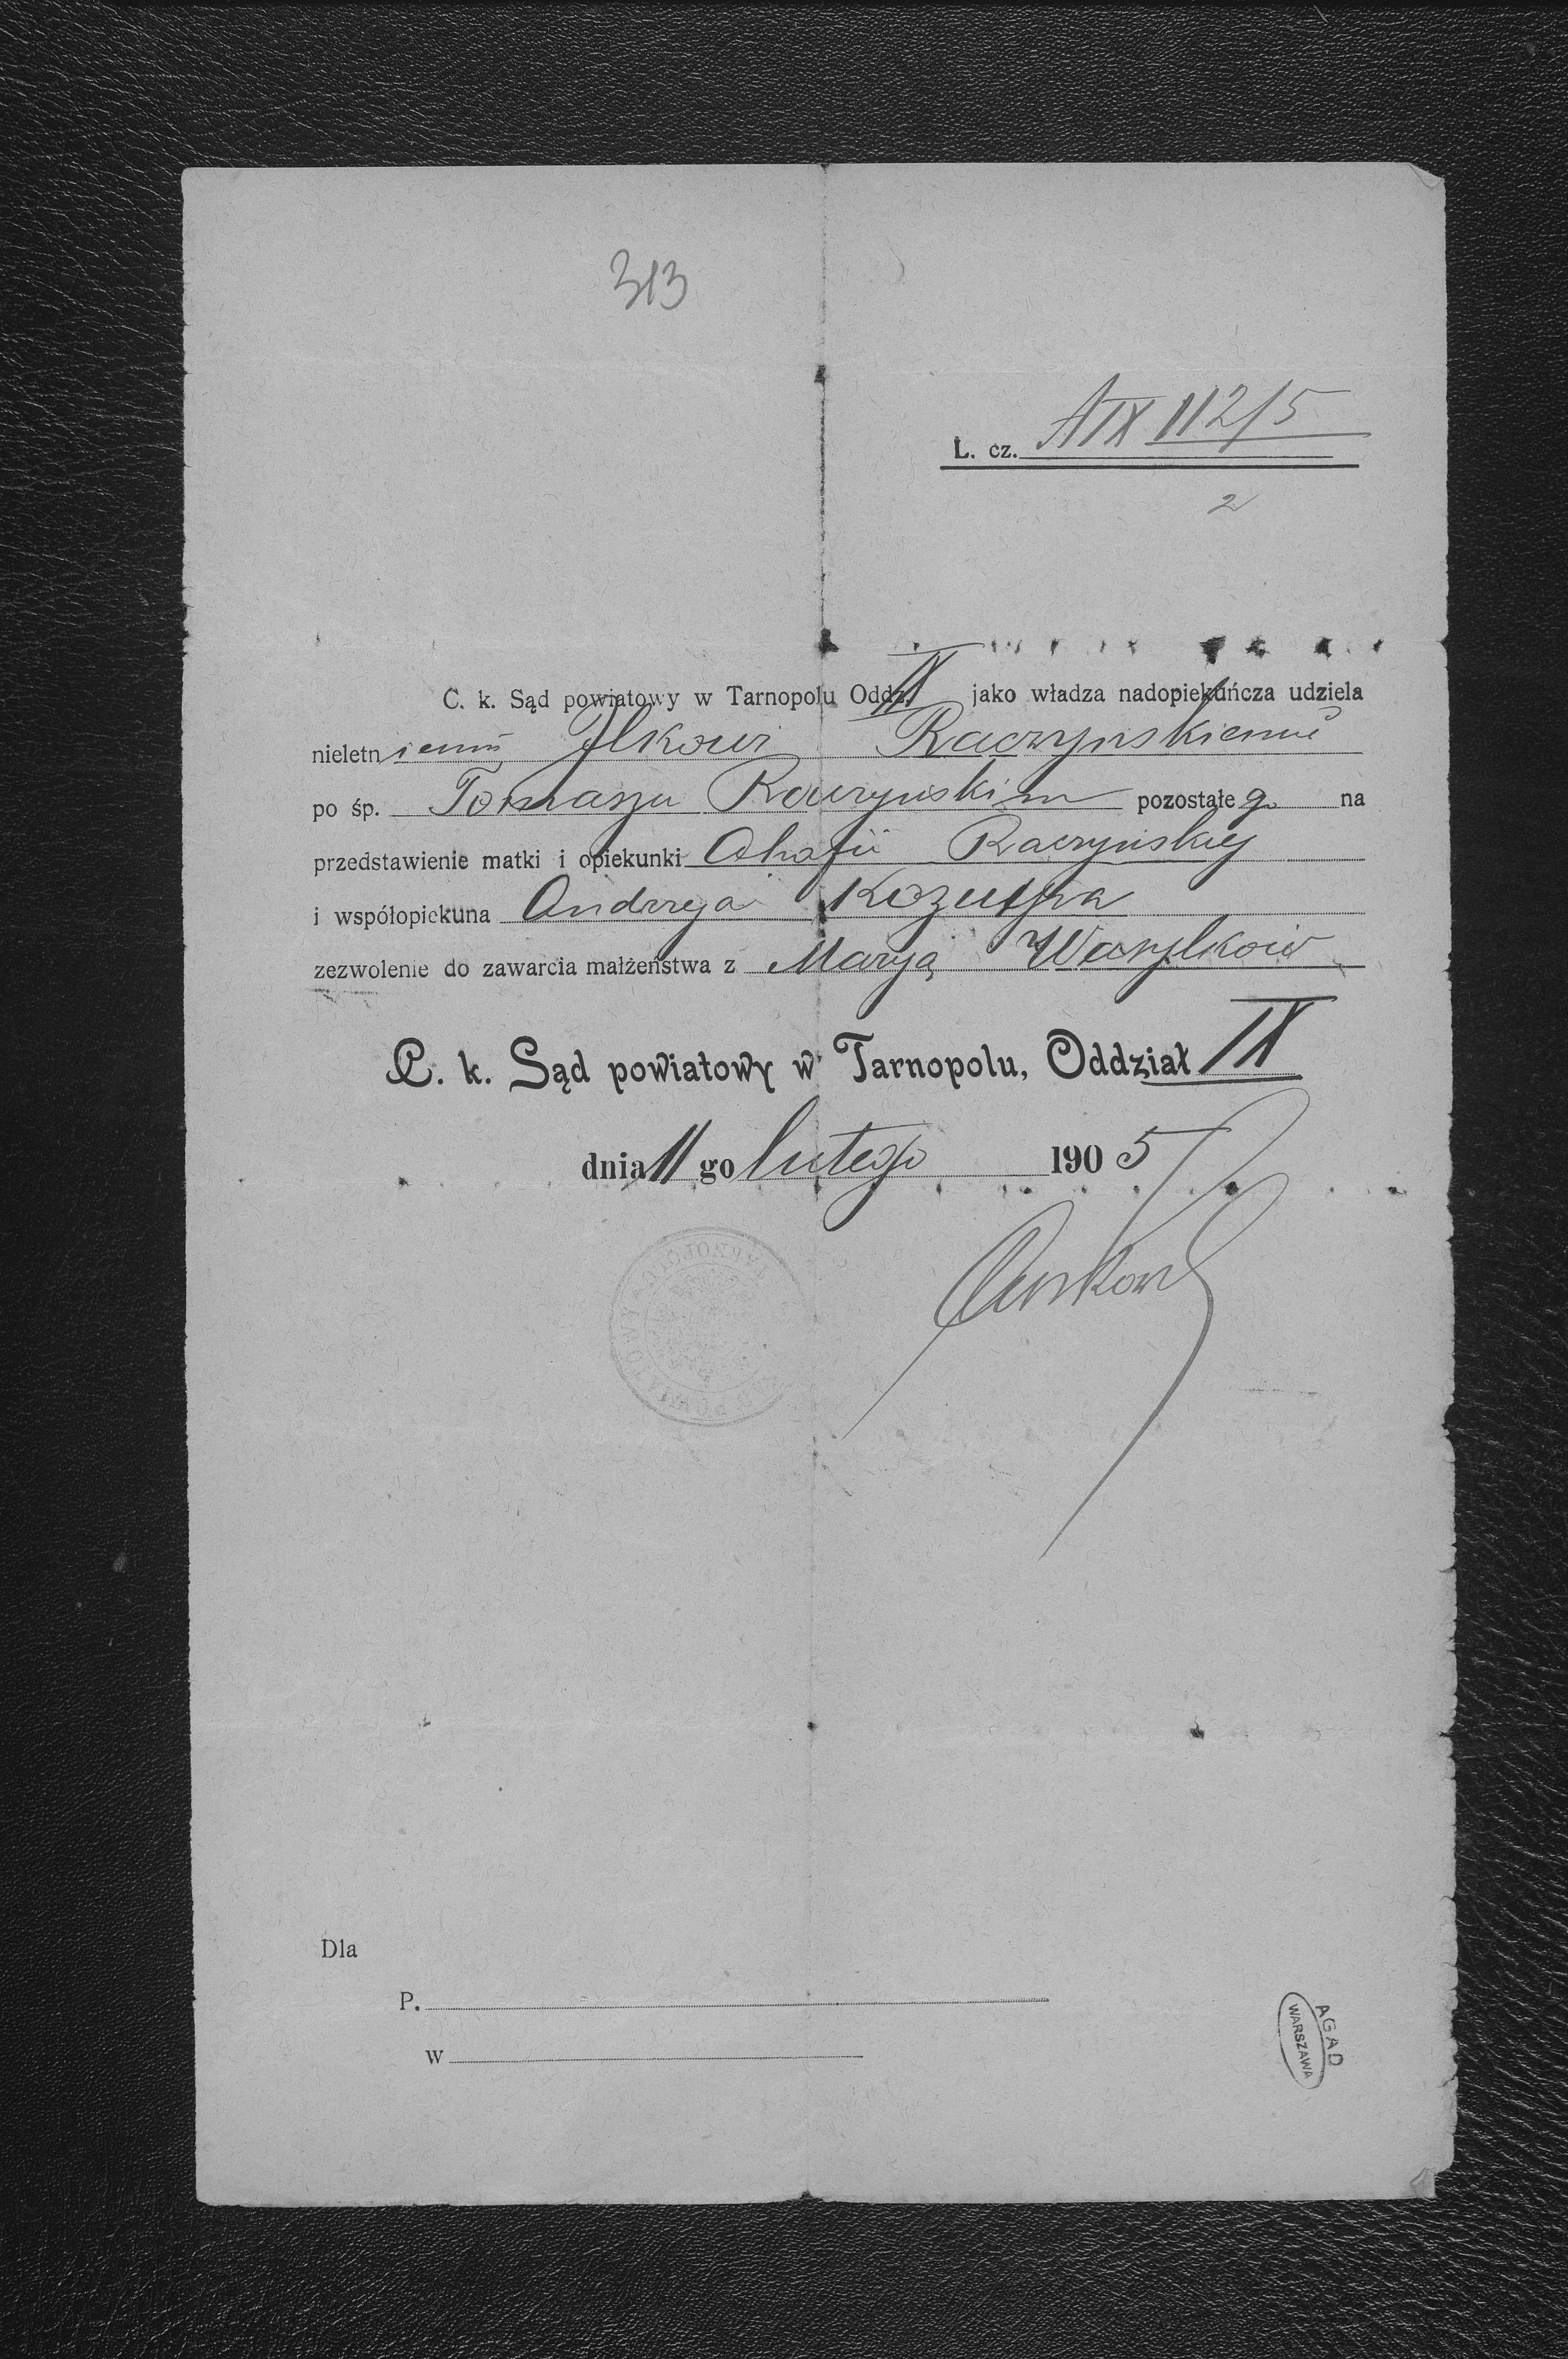 313
L. cz. A IX 112/5
2
C. k. Sąd powiatowy w Tarnopolu Oddz. IX jako władza nadopiekuńcza udziela
nieletniemu Ilkowi Raczyńskiemu
po śp. Tomaszu Raczyńskim pozostałego na
przedstawienie matki i opiekunki Ahafii Raczyńskiej
i współopiekuna Andrzeja
zezwolenie do zawarcia małżeństwa z Maryą Wasylków
C. k. Sąd powiatowy w Tarnopolu, Oddział IX
dnia 11 go lutego 1905
POWIATOWY TARNOPOLU
Dla
P.
w
AGAD
WARSZAWA